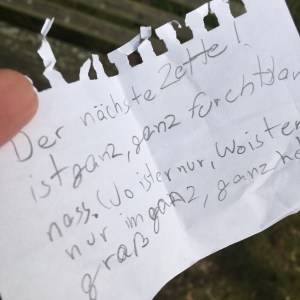 Der nächste Zettel
ist ganz, ganz furchtbar
nass. (Wo ist er nur, wo ist er
nur im ganz, ganz
graß